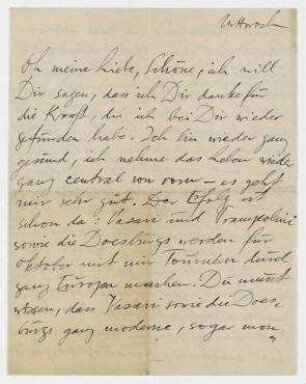 Mittwoch
Oh meine liebe, Schöne, ich will
Dir sagen, dass ich Dir danke für
die Kraft, die ich bei Dir wieder
gefunden habe. Ich bin wieder ganz
gesund, ich nehme das Leben wieder
ganz central von vorn – es geht
mir sehr gut. Der Erfolg ist
schon da! Vasari und Prampolini
sowie die Doesburgs werden für
Oktober mit mir Tournéen durch
ganz Europa machen. Du musst
wissen, dass Vasari sowie die Does-
burgs ganz moderne, sogar mon,